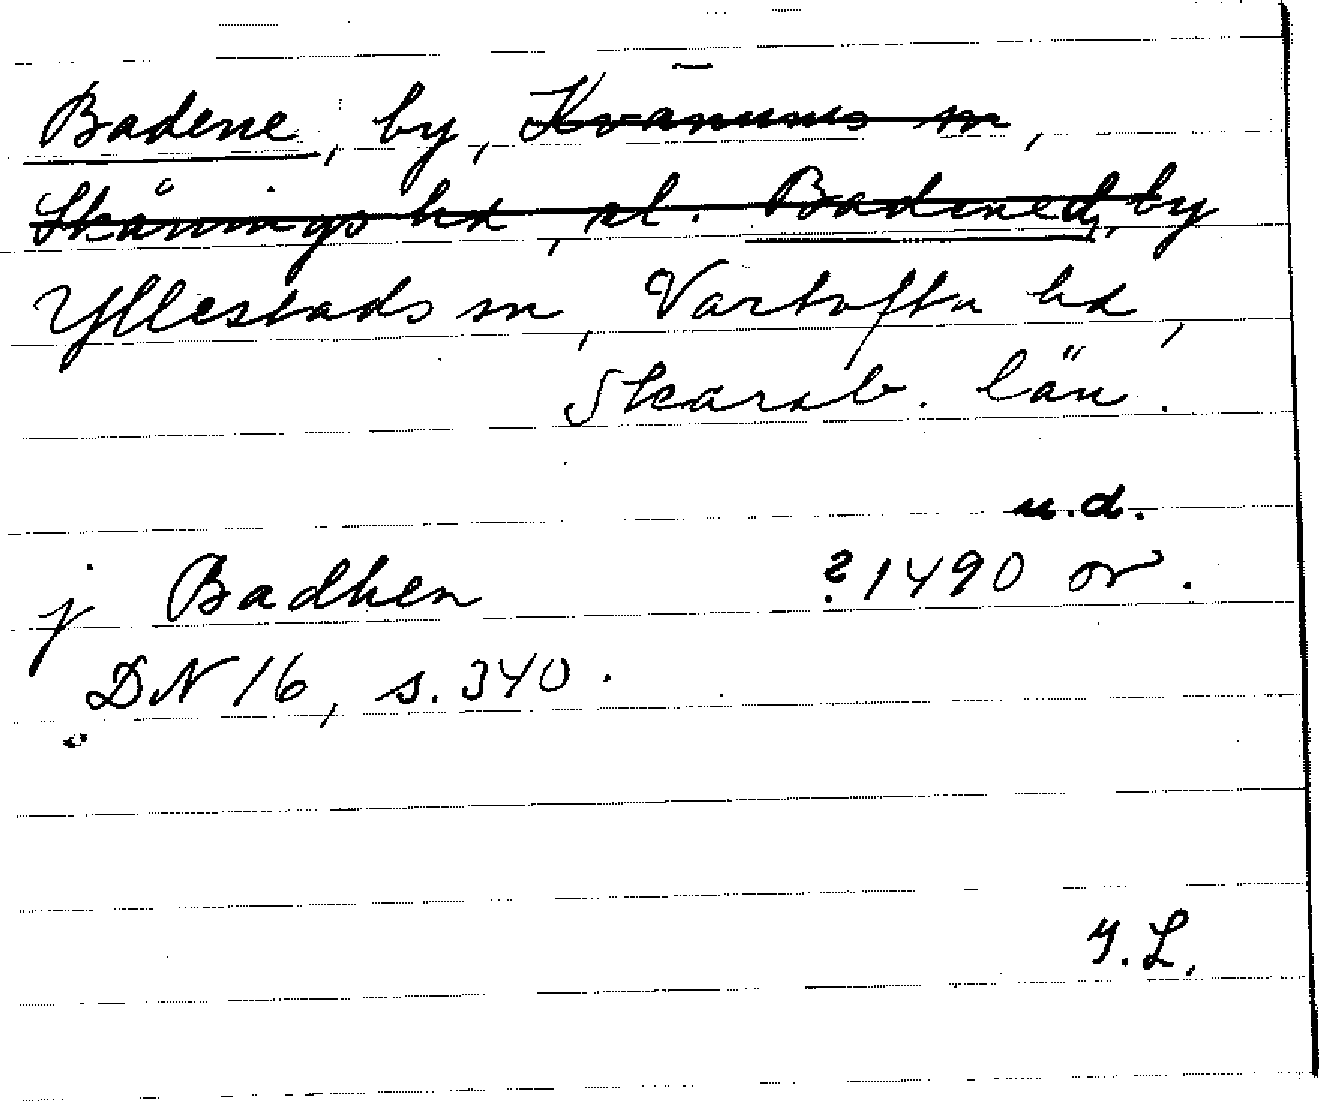 Badene, by, Kvänums sn,
Skånings hd, el. Badened, by
Yllestads sn, Vartofta hd,
Skarab. län.
u.d.
j Badhen ? 1490 or.
DN 16, s. 340.
Y.L.